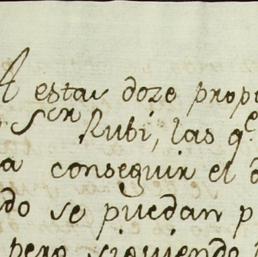 A estas doze prop
S.cr Rubi, las q.e
a conseguir el d
do se puedan p
pero siguiendo